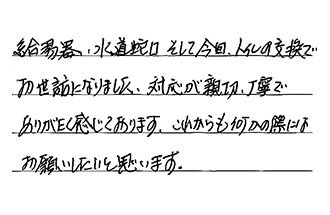 給湯器、水道蛇口 そして今回、トイレの交換で
お世話になりました、対応が親切、丁寧で
ありがたく感じております、これからも何かの際には
お願いしたいと思います。